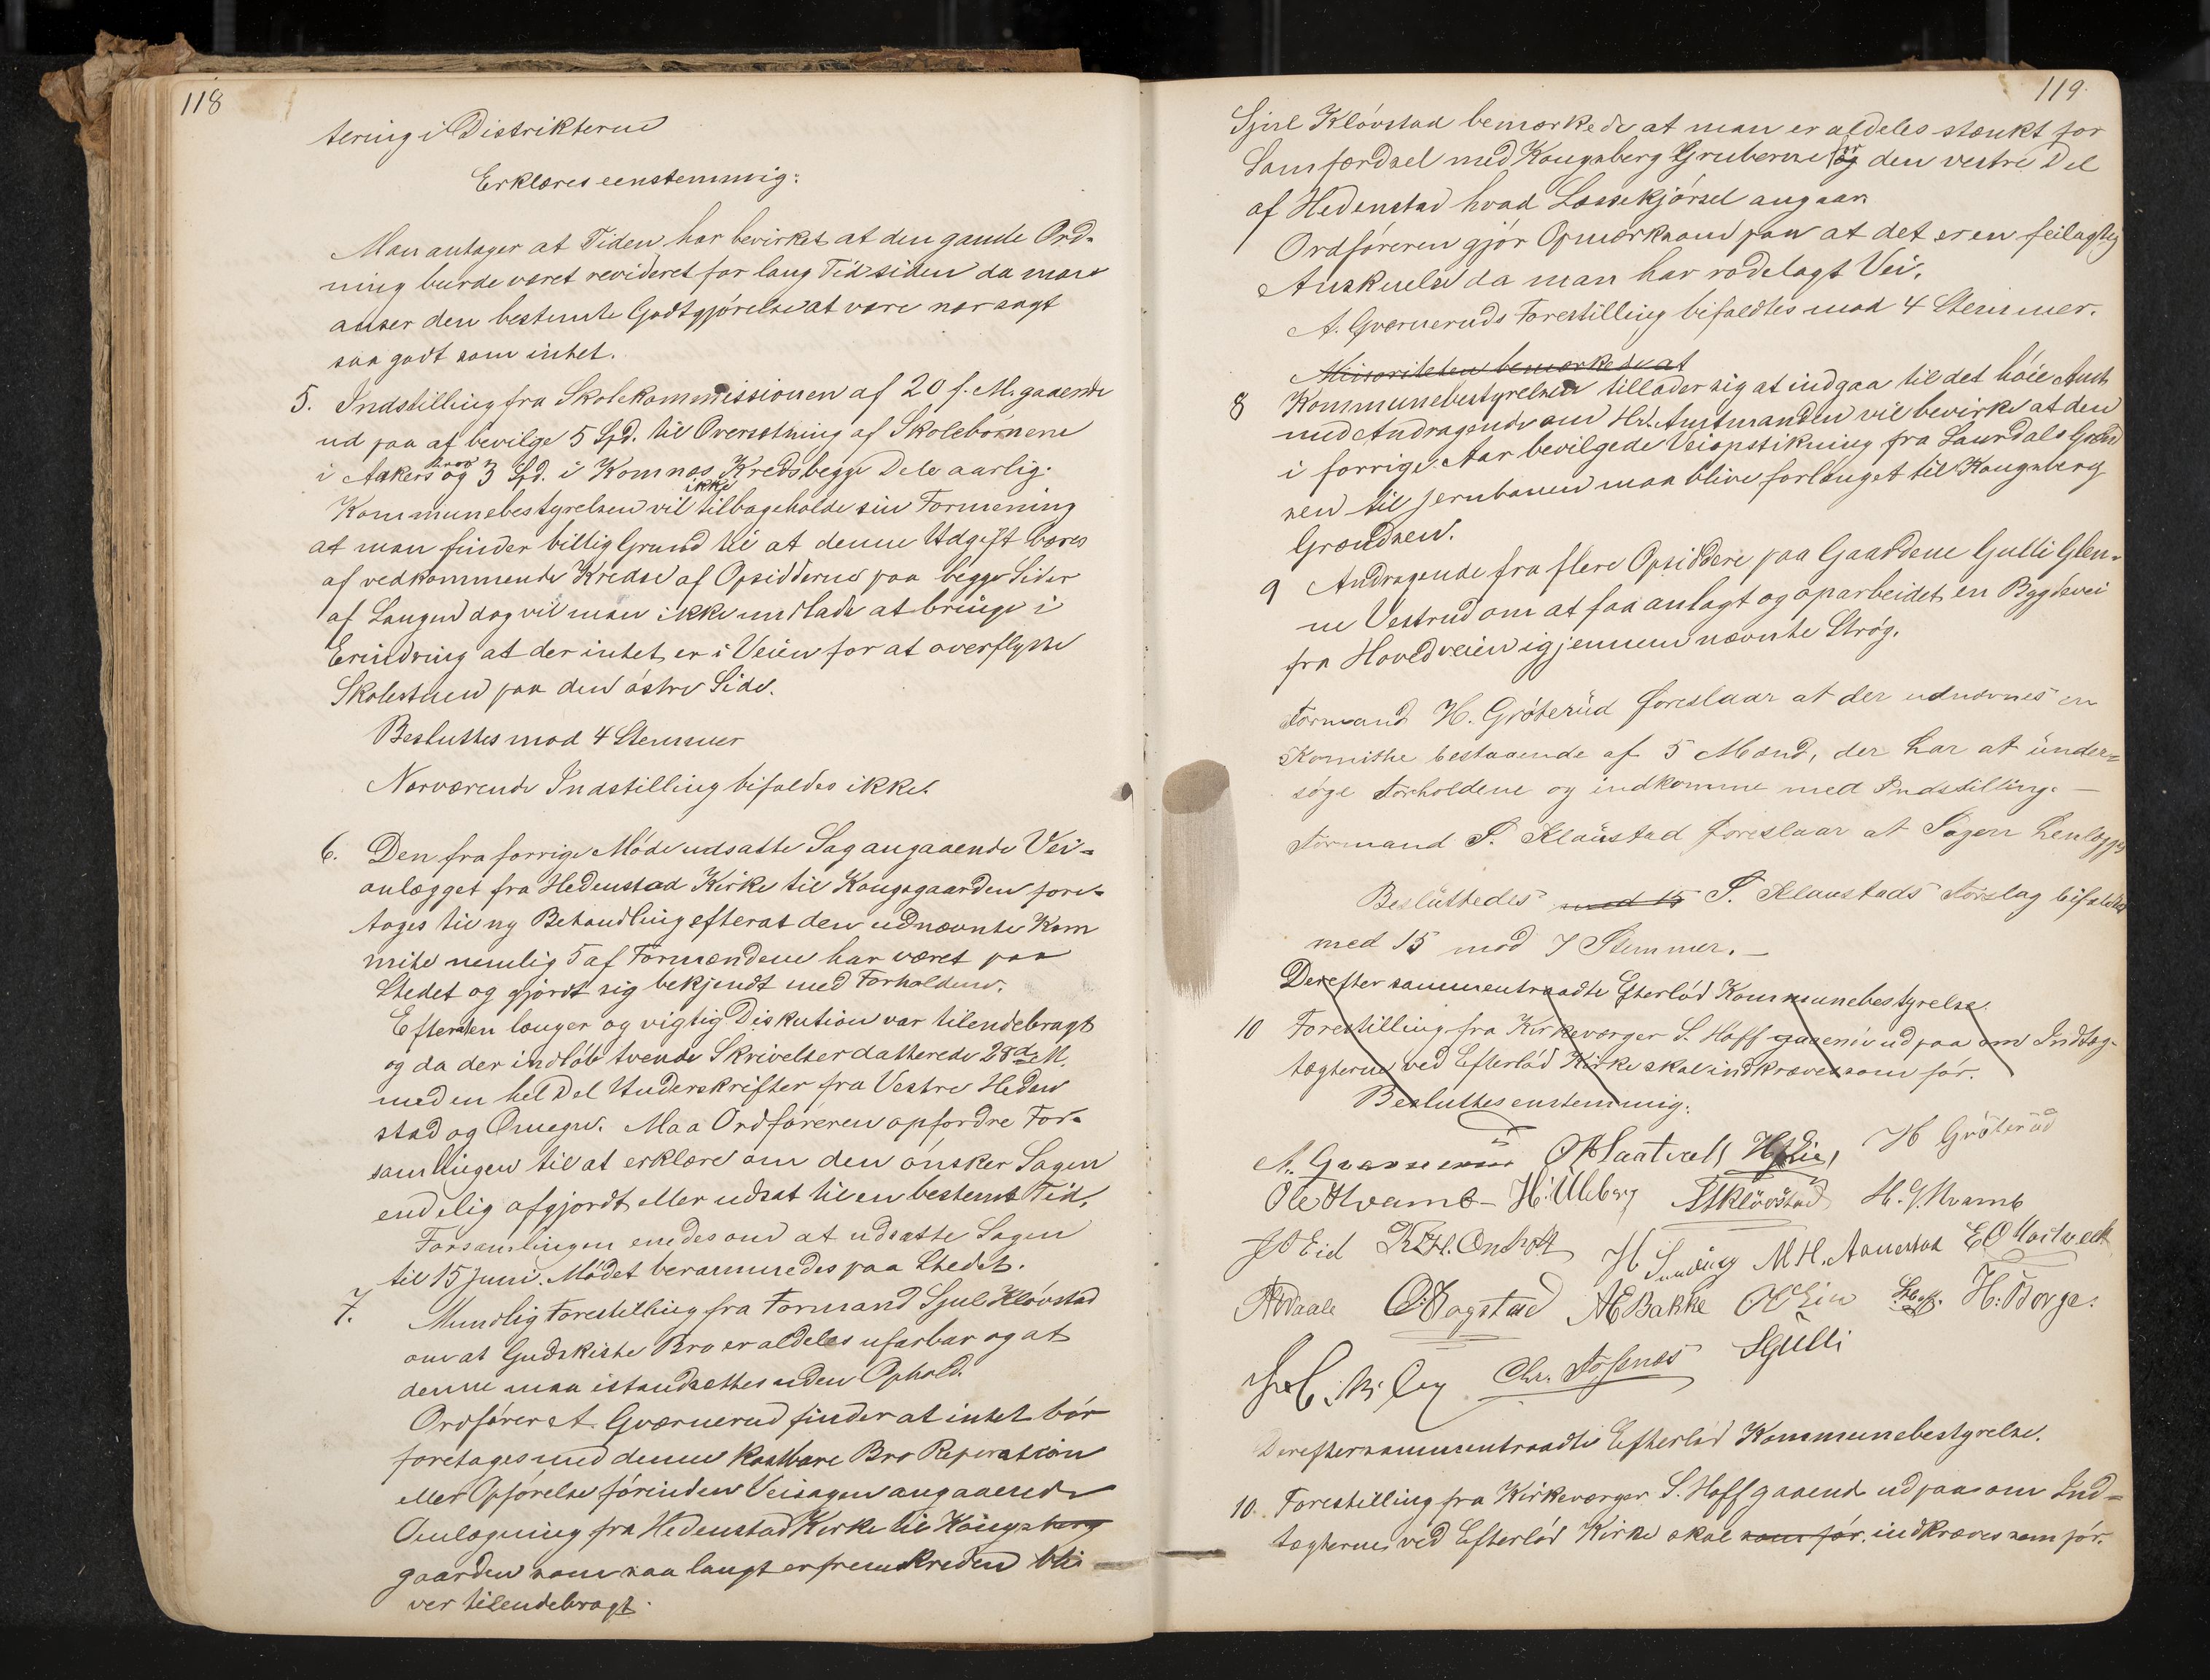 118
tering i Distrikterne
Erklæres eenstemmig:
Man antager at Tiden har bevirket at den gamle Ord-
ning burde været revideret for lang Tid siden da man
anser den bestemte Godtgjörelse at være nær sagt
saa godt som intet.
5. Indstilling fra Skolekommissionen af 20 f. M. gaaende
ud paa at bevilge 5 Spd. til Oversætning af Skolebörnene
i Aakers og 3 Spd. i Komnæs Kreds begge Dele aarlig.
Kommunebestyrelsen vil ikke tilbageholde sin Formening
at man finder billig Grund til at denne Udgift bæres
af vedkommende Kredse af Opsidderne paa begge Sider
af Laugen dog vil man ikke undlade at bringe i
Erindring at der intet er i Veien for at overflytte
Skolestuen paa den östre Side.
Besluttes mod 4 Stemmer
Nærværende Indstilling bifaldes ikke.
6. Den fra forrige Möde udsatte Sag angaaende Vei-
anlægget fra Hedenstad Kirke til Kongsgaarden fore-
tages til ny Behandling efterat den udnævnte Kom
mite nemlig 5 af Formændene har været paa
Stedet og gjordt sig bekjendt med Forholdene.
Efter en længer og vigtig Diskution var tilendebragt
og da der indlöb tvende Skrivelser datterede 28d. M.
med en hel Del Underskrifter fra Vestre Heden
stad og Omegn. Maa Ordföreren opfordre For-
samlingen til at erklære om den önsker Sagen
endelig afgjordt eller udsat til en bestemt Tid.
Forsamlingen enedes om at udsætte Sagen
til 15 Juni. Mödet berammedes paa Stedet.
7. Mundlig Forestilling fra Formand Sjul Klövstad
om at Gudskiste Bro er aldeles ufarbar og at
denne maa istandsættes uden Ophold.
Ordförer A. Gværnerud finder at intet bör
foretages med denne kostbare Bro Reperation
eller Opförelse förinden Veisagen angaaende
Omlægning fra Hedenstad Kirke til Kongsberg
gaarden som saa langt er fremskreden bli
ver tilendebragt.
119.
Sjul Klövstad bemærkede at man er aldeles stænkt for
Samfærdsel med Kongsberg Gruberne og den vestre Del
af Hedenstad hvad Læssekjörsel angaar
Ordföreren gjör Opmærksom paa at det er en feilagtig
Anskuelse da man har rodelagt Vei.
A. Gværneruds Forestilling bifaldtes mod 4 Stemmer.
Minoriteten bemærkede at
8 Kommunebestyrelsen tillader sig at indgaa til det höie Amt
med Andragende om Hr. Amtmanden vil bevirke at den
i forrige Aar bevilgede Veiopstikning fra Laurdals Grænd
sen til Jernbanen maa blive forlænget til Kongsberg
Grændsen.
9 Andragende fra flere Opsiddere paa Gaardene Gulli Glen-
ne Vestrud om at faa anlagt og oparbeidet en Bygdevei
fra Hovedveien igjennem nævnte Strög.
Formand H. Gröterüd foreslaar at der udnævnes en
Komitte bestaaende af 5 Mænd, der har at ünder=
söge Forholdene og indkomme med Indstilling. —
Formand S. Klaüstad foreslaar at Sagen henlægges
Beslüttedes med 15 S. Klaustads Forslag bifaldtes
med 15 mod 7 Stemmer. —
Derefter sammentraadte Efterlöd Kommunebestyrelse.
10 Forestilling fra Kirkeværger S. Hoff gaaende ud paa om Indtæg-
tægterne ved Efterlöd Kirke skal indkræves som för.
Besluttes enstemmig:
A. Gværnerud H. Lie, H Gröterüd
Ole Hvamb H. Ulleberg S Klövstad H. G. Hvamb
J O Eid H Sundby
O. Vogstad A E Bakke O O Lien S. Hoff. H: Borge.
Chr. Fosnæs S Gulli
Derefter sammentraadte Efterlöd Kommunebestyrelse.
10. Forestilling fra Kirkeværger S. Hoff gaaende ud paa om Ind-
tægterne ved Efterlöd Kirke skal som för. indkræves som för.